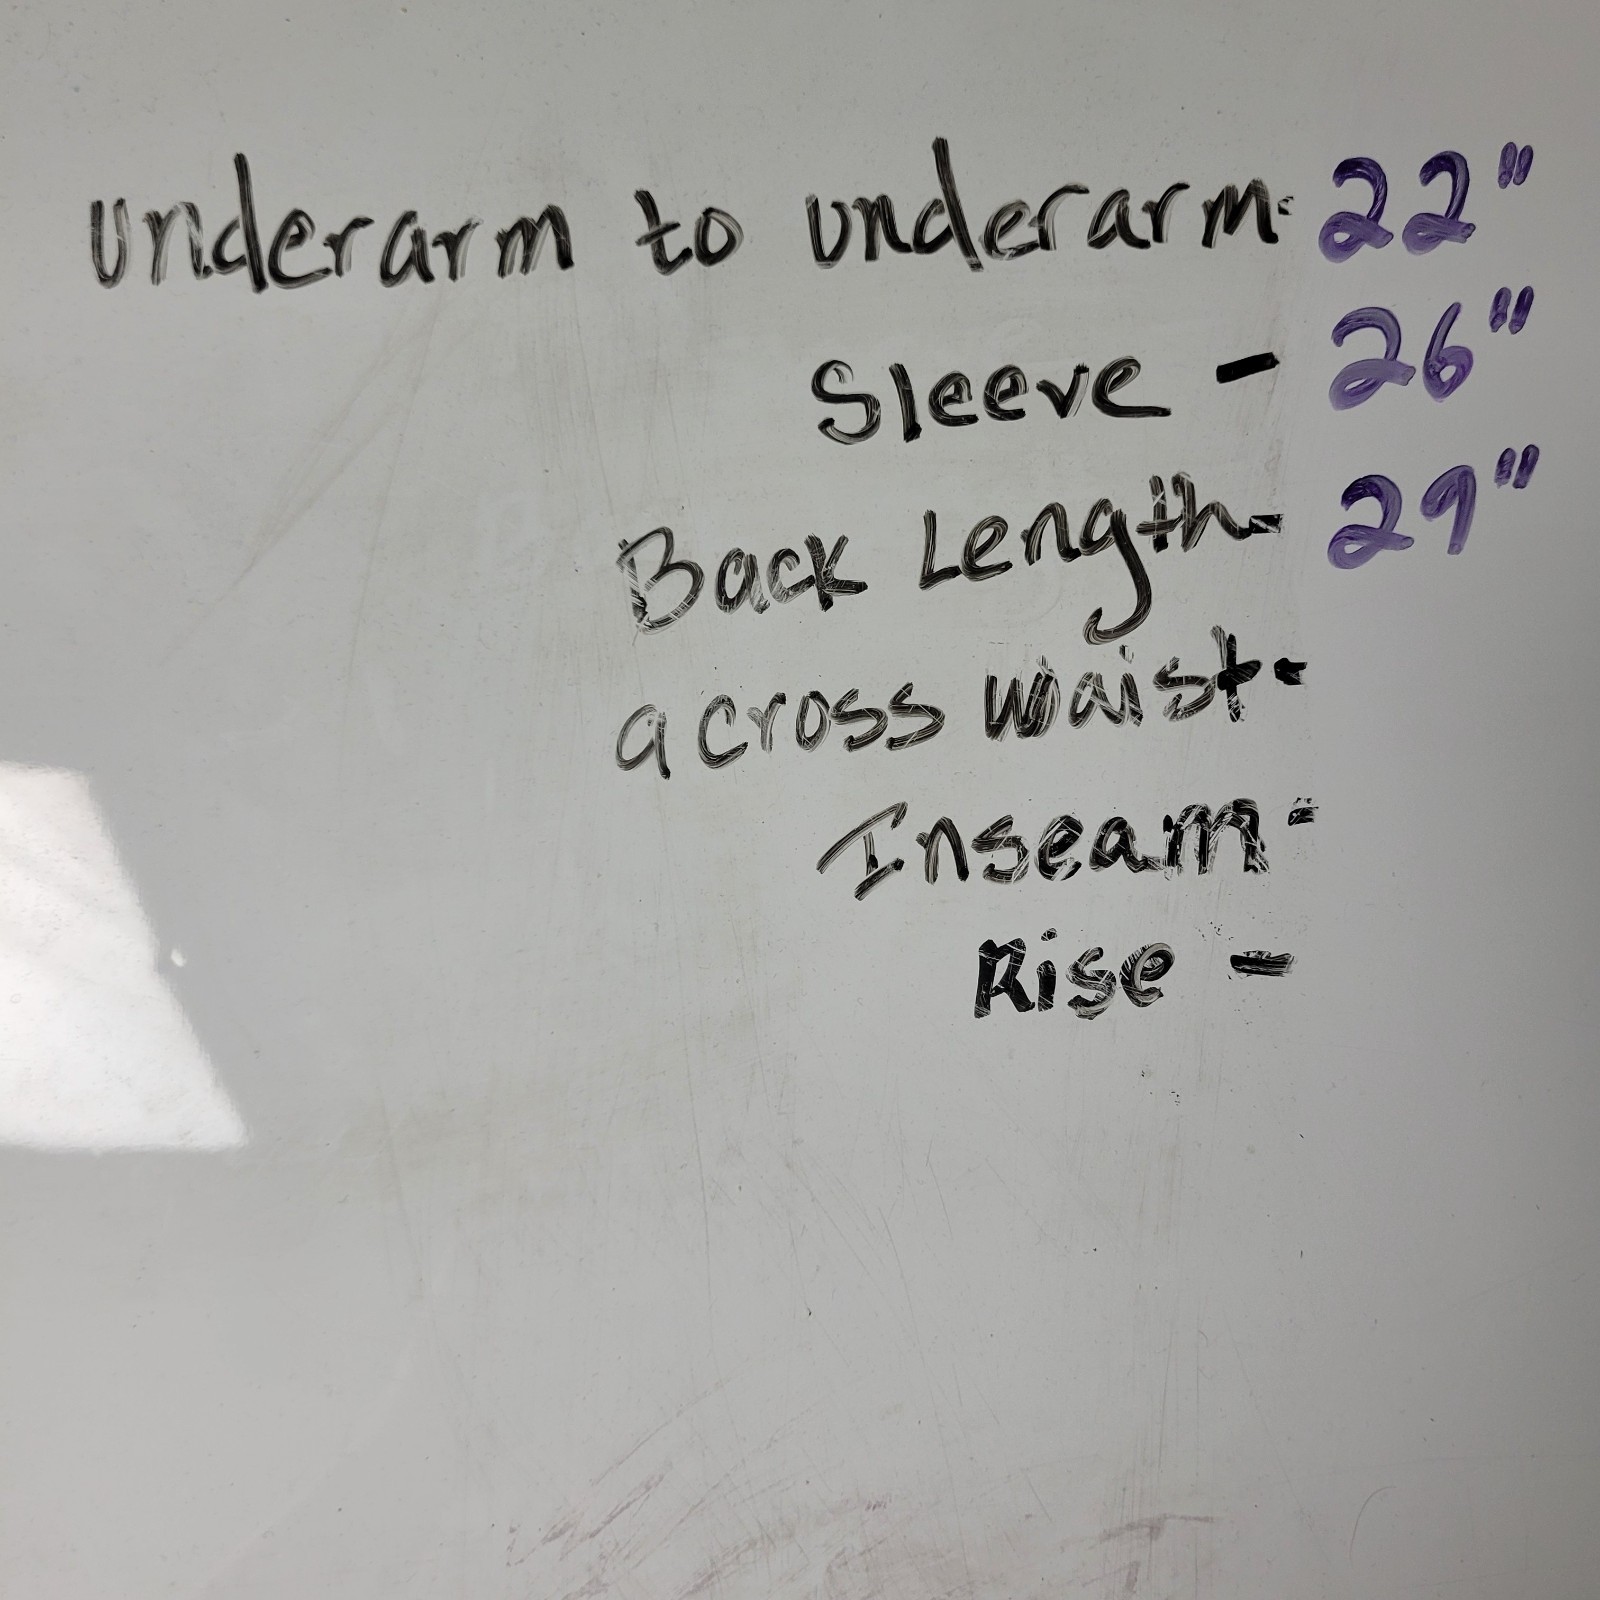 underarm to underarm- 22"
Sleeve - 26"
Back Length- 29"
across waist-
Inseam-
Rise -